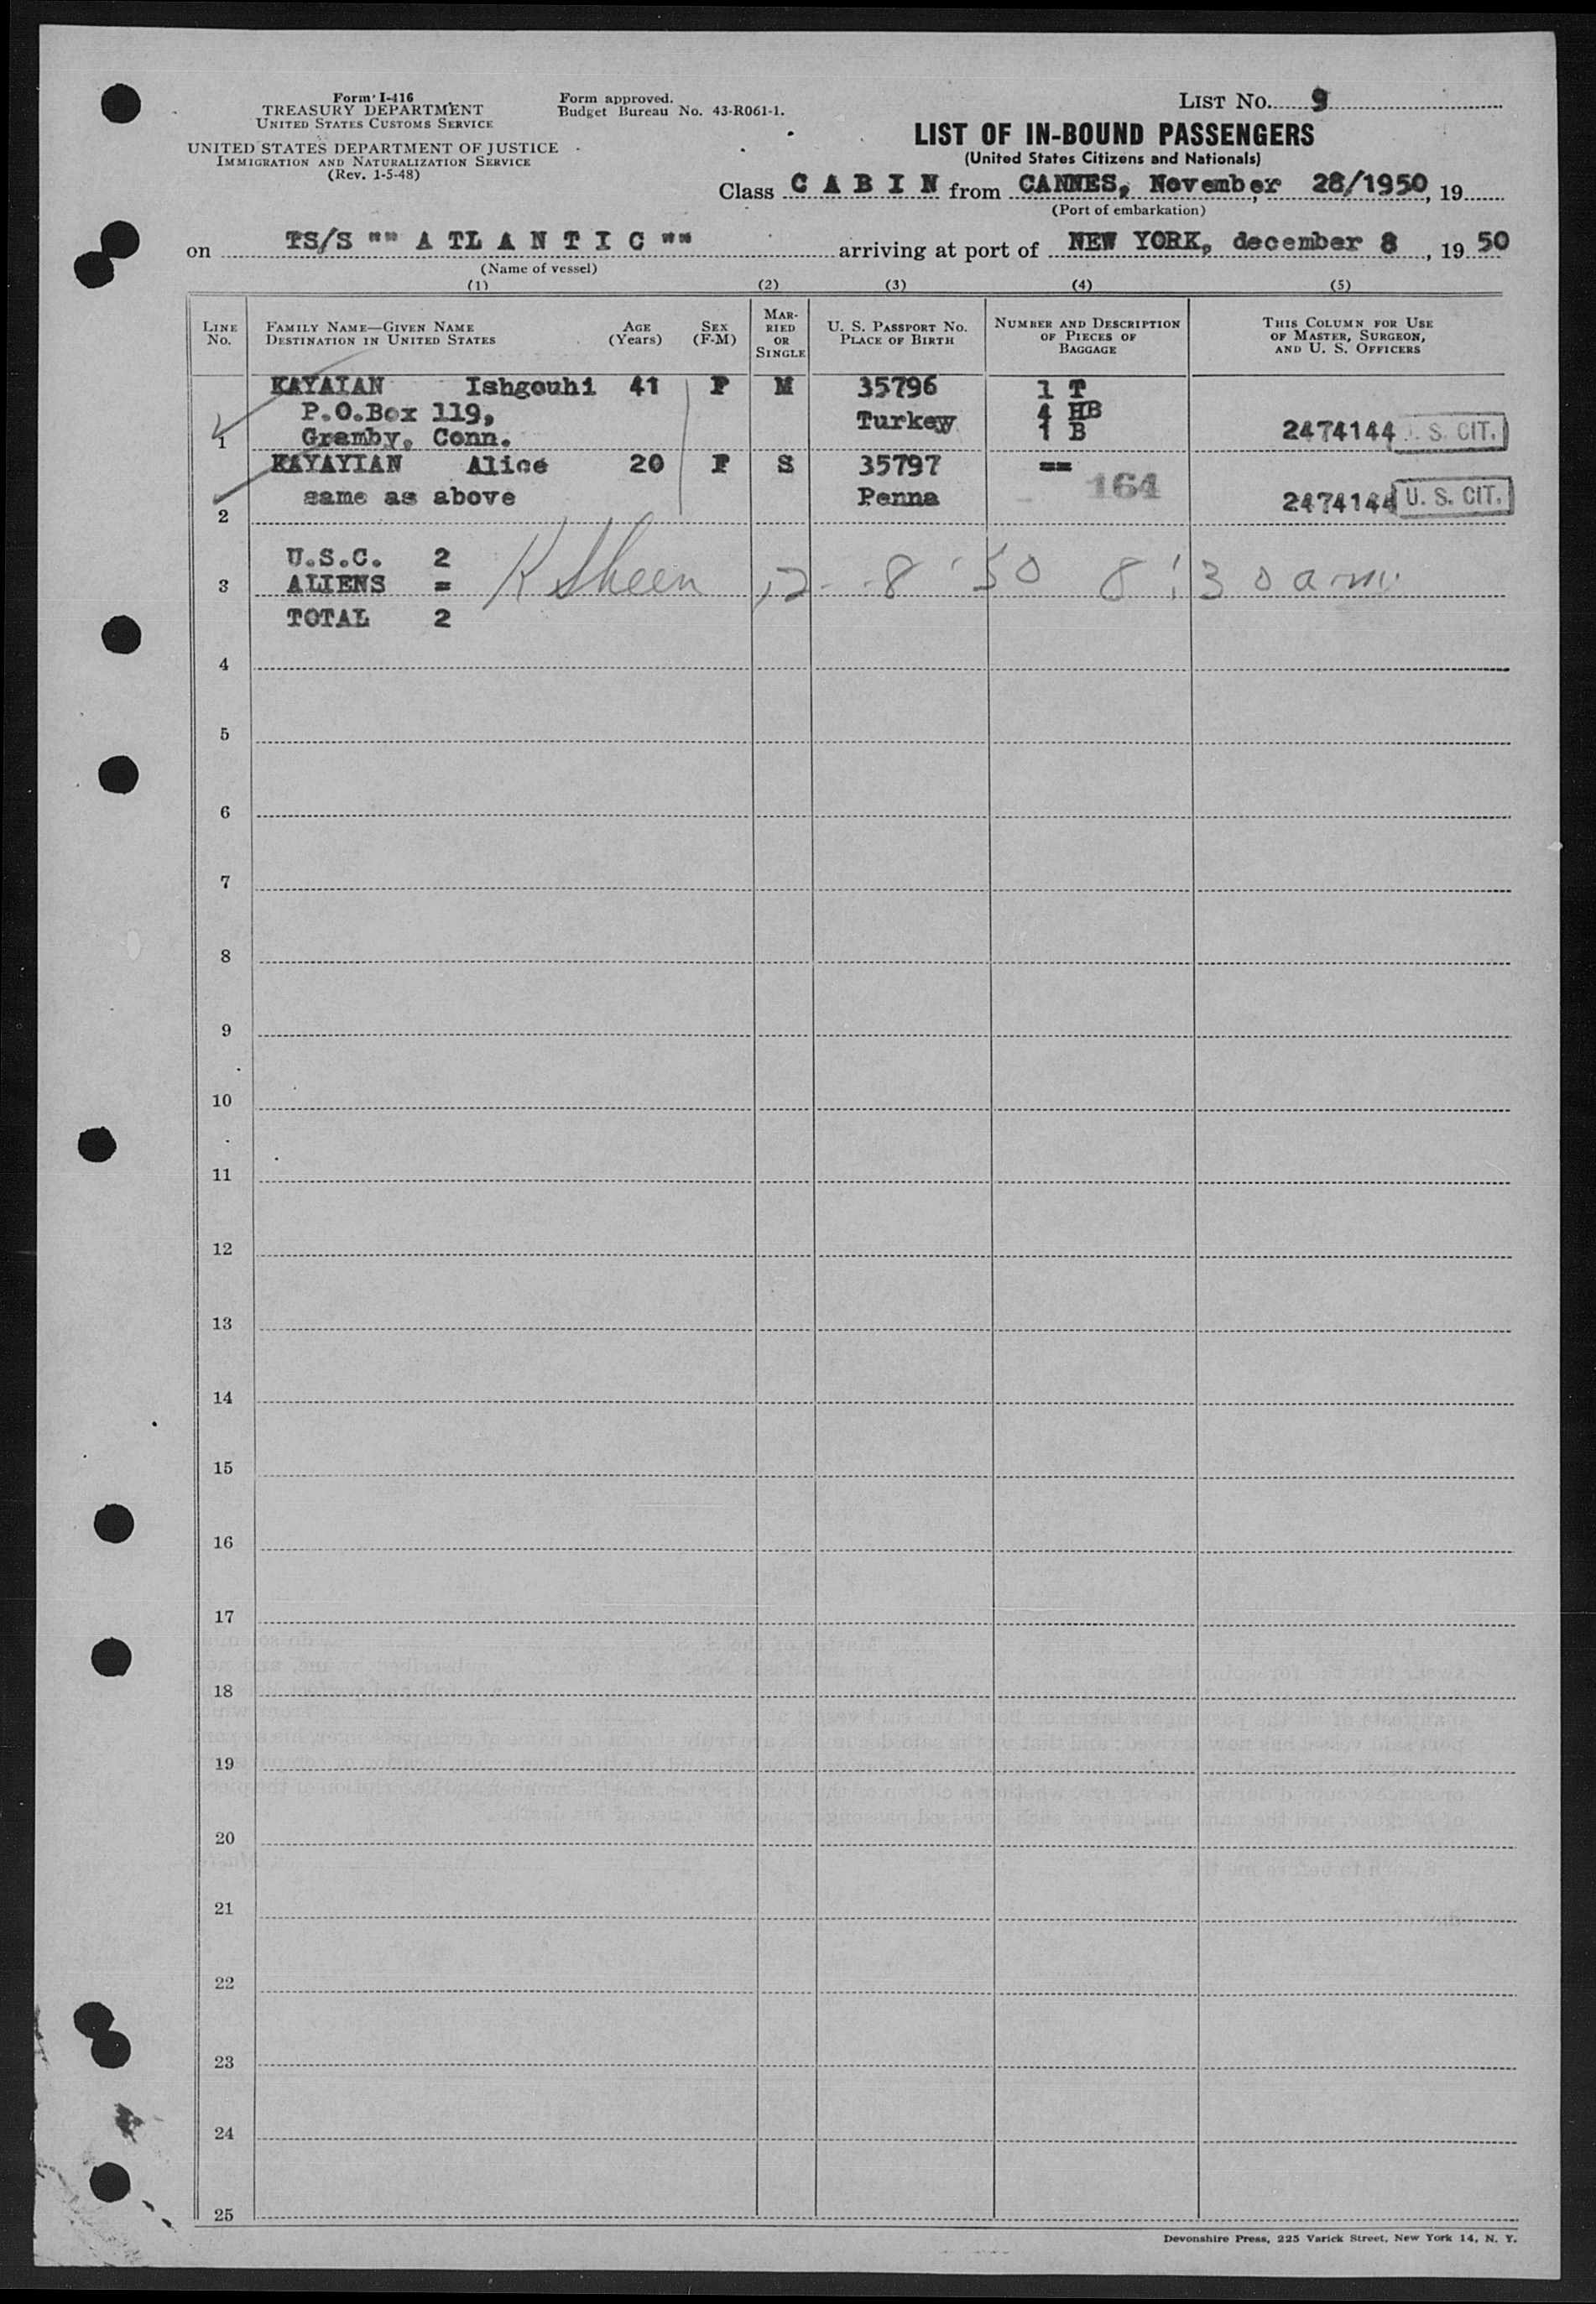 Form I-416
TREASURY DEPARTMENT
UNITED STATES CUSTOMS SERVICE
UNITED STATES DEPARTMENT OF JUSTICE
IMMIGRATION AND NATURALIZATION SERVICE
(Rev. 1-5-48)
Form approved.
Budget Bureau No. 43-R061-1.
LIST NO. 9
LIST OF IN-BOUND PASSENGERS
(United States Citizens and Nationals)
Class C A B I N from CANNES, November 28/1950, 19
(Port of embarkation)
on TS/S "" A TL A N T I C "" arriving at port of NEW YORK, december 8, 19 50
(Name of vessel)
(1) (2) (3) (4) (5)
LINE NO.
FAMILY NAME—GIVEN NAME
DESTINATION IN UNITED STATES
AGE (Years)
SEX (F-M)
MARRIED OR SINGLE
U. S. PASSPORT NO.
PLACE OF BIRTH
NUMBER AND DESCRIPTION OF PIECES OF BAGGAGE
THIS COLUMN FOR USE OF MASTER, SURGEON, AND U. S. OFFICERS
KAYAIAN Ishgouhi 41 F M 35796 1 T
P.O.Box 119, Turkey 4 HB
1 Gramby, Conn. 1 B 2474144 U. S. CIT.
KAYAYIAN Alice 20 F S 35797 == 164
2 same as above Penna 2474144 U. S. CIT.
U.S.C. 2
3 ALIENS = K Sheen 12-8-50 8:30 am
TOTAL 2
4
5
6
7
8
9
10
11
12
13
14
15
16
17
18
19
20
21
22
23
24
25
Devonshire Press, 225 Varick Street, New York 14, N. Y.